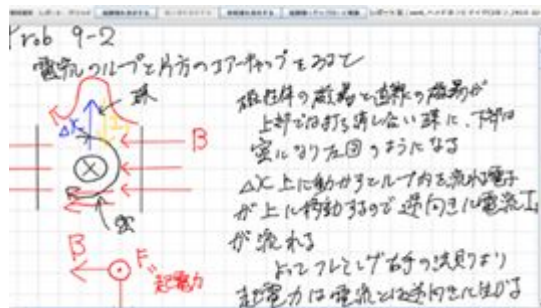 Prob 9-2
電流のループと片方のコアーギャップをおよそ
疎
ΔX
B
密
B
F=
起電力
磁性体の磁場と直流の磁場が
上部では打ち消し合い疎に、下部は
密になり左図のようになる
ΔX上に動かすとループ内を流れる電子
が上に移動するので逆向きに電流I
が流れる
よってフレミング右手の法則より
起電力は電流とは逆向きに生じる